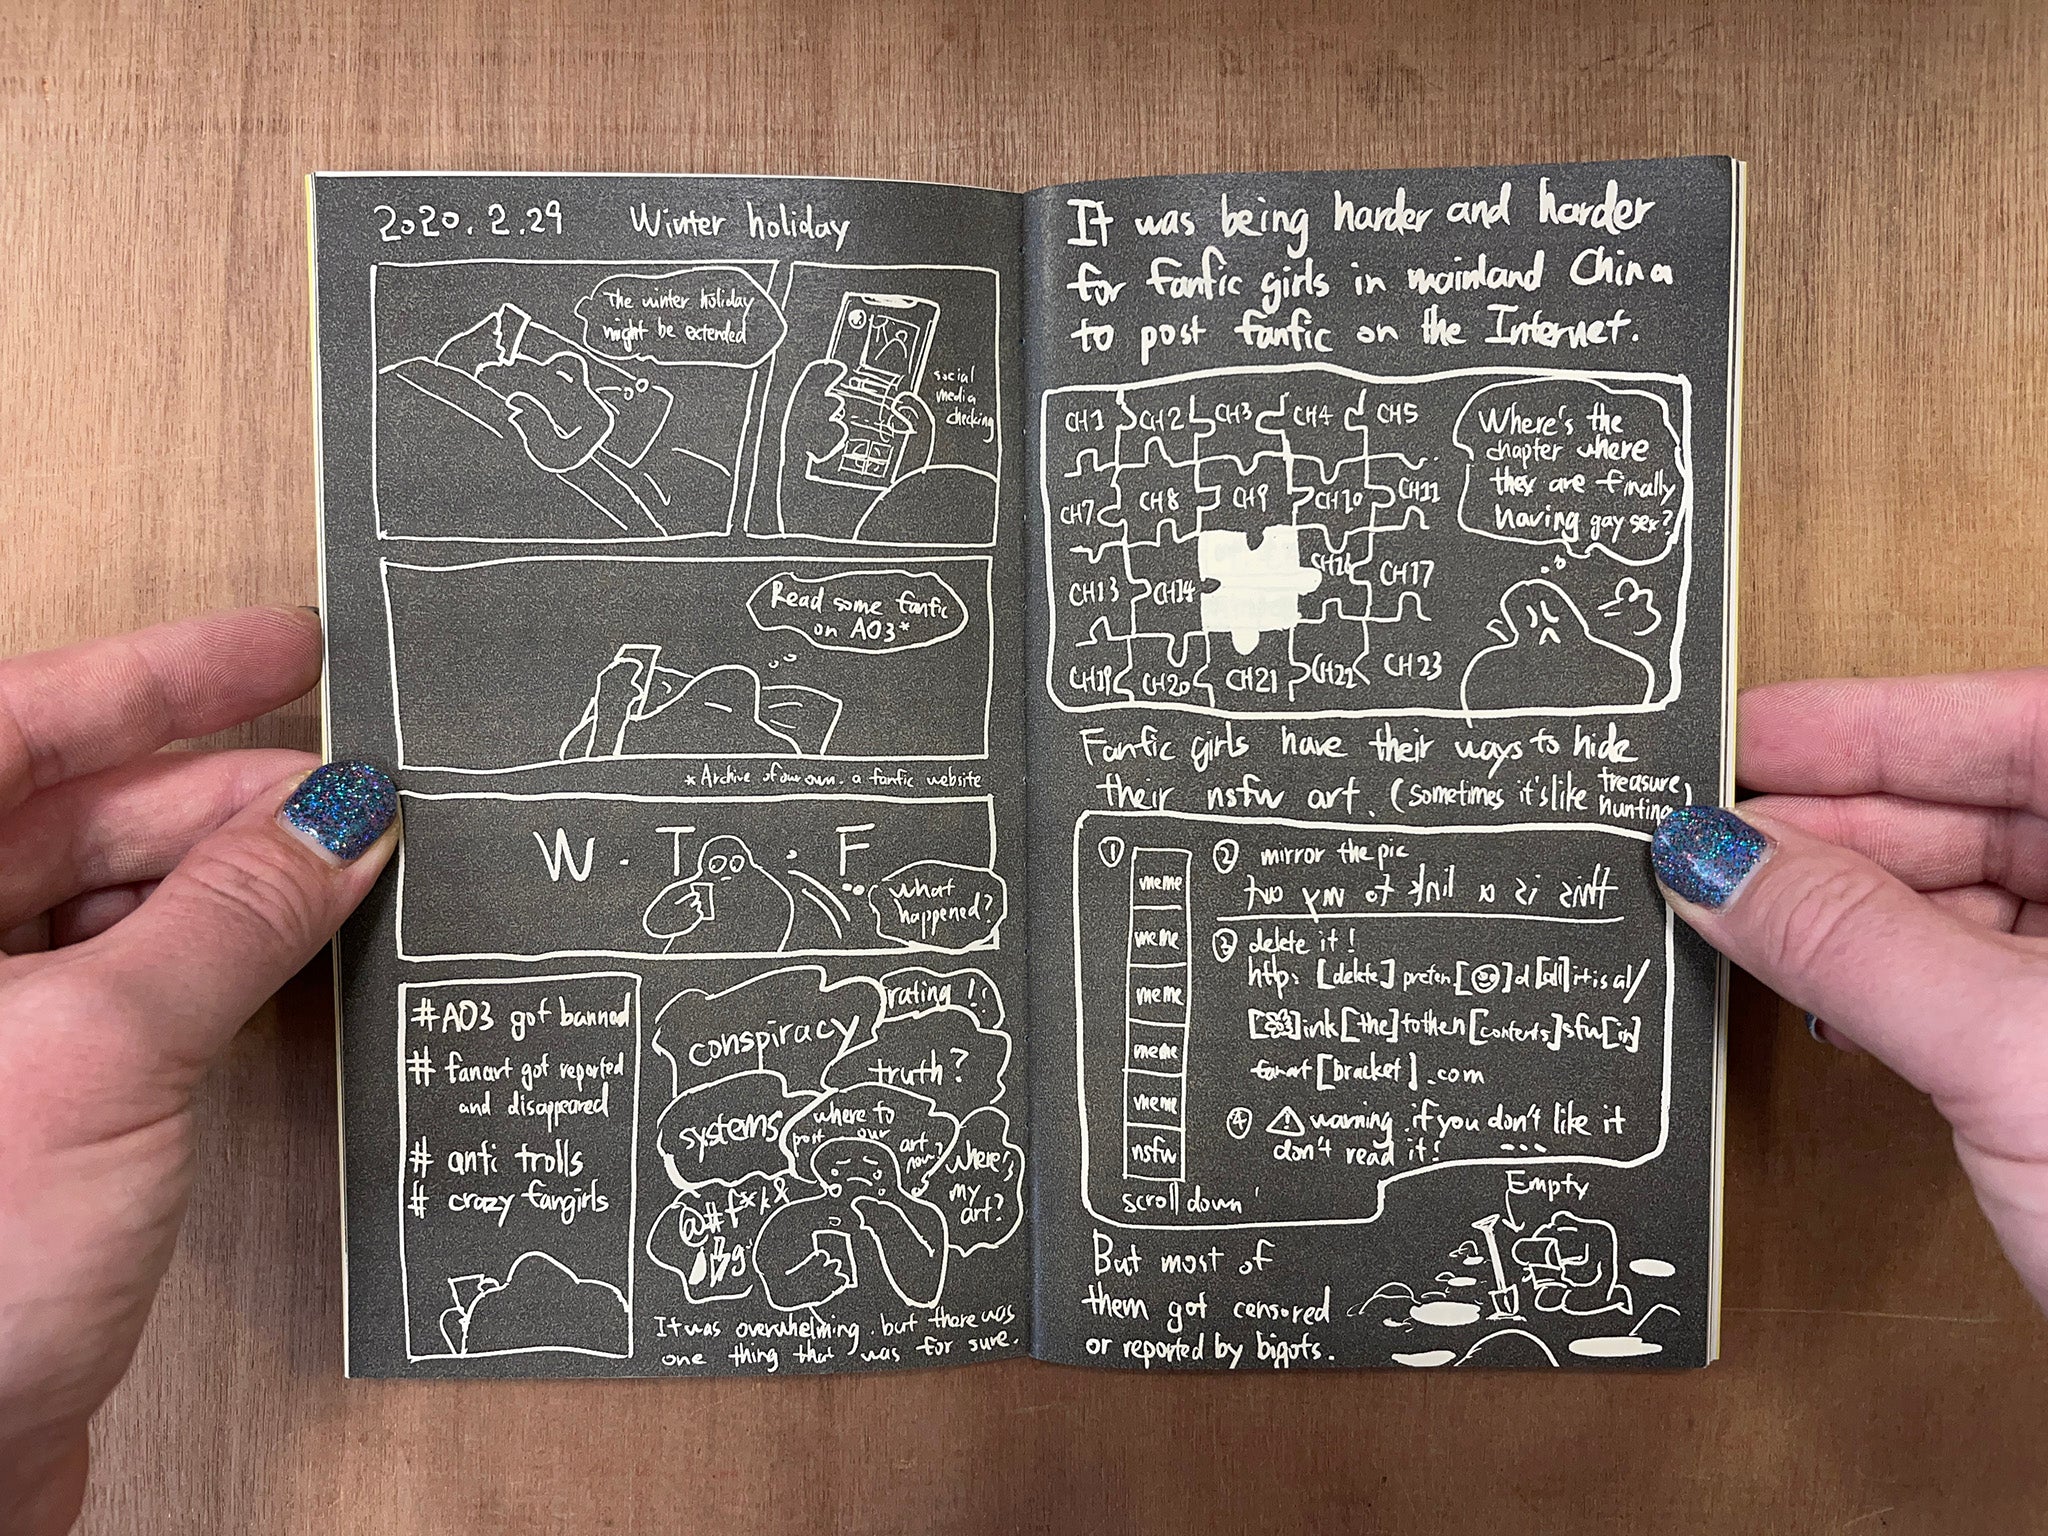 2020.2.29 Winter holiday
The winter holiday
might be extended
social
media
checking
Read some fanfic
on AO3*
*Archive of our own. a fanfic website
W.T.F
what
happened?
#AO3 got banned
# fanart got reported
and disappeared
# anti trolls
# crazy fangirls
conspiracy
rating!!
truth?
systems
where to
post our
art now?
Where's
my
art?
@#f*k&
It was overwhelming. but there was
one thing that was for sure.
It was being harder and harder
for fanfic girls in mainland China
to post fanfic on the Internet.
CH1 CH2 CH3 CH4 CH5
CH7 CH8 CH9 CH10 CH11
CH13 CH14 CH16 CH17
CH19 CH20 CH21 CH22 CH23
Where's the
chapter where
they are finally
having gay sex?
Fanfic girls have their ways to hide
their nsfw art. (sometimes it's like treasure
hunting)
①
meme
meme
meme
meme
meme
nsfw
scroll down
② mirror the pic
this is a link to my art
③ delete it!
http: [delete] preten [☺] d [all] it is al/
[]ink[the]tothen[contents]sfw[in]
fanart[bracket].com
④ ⚠ warning. if you don't like it
don't read it! ...
Empty
But most of
them got censored
or reported by bigots.